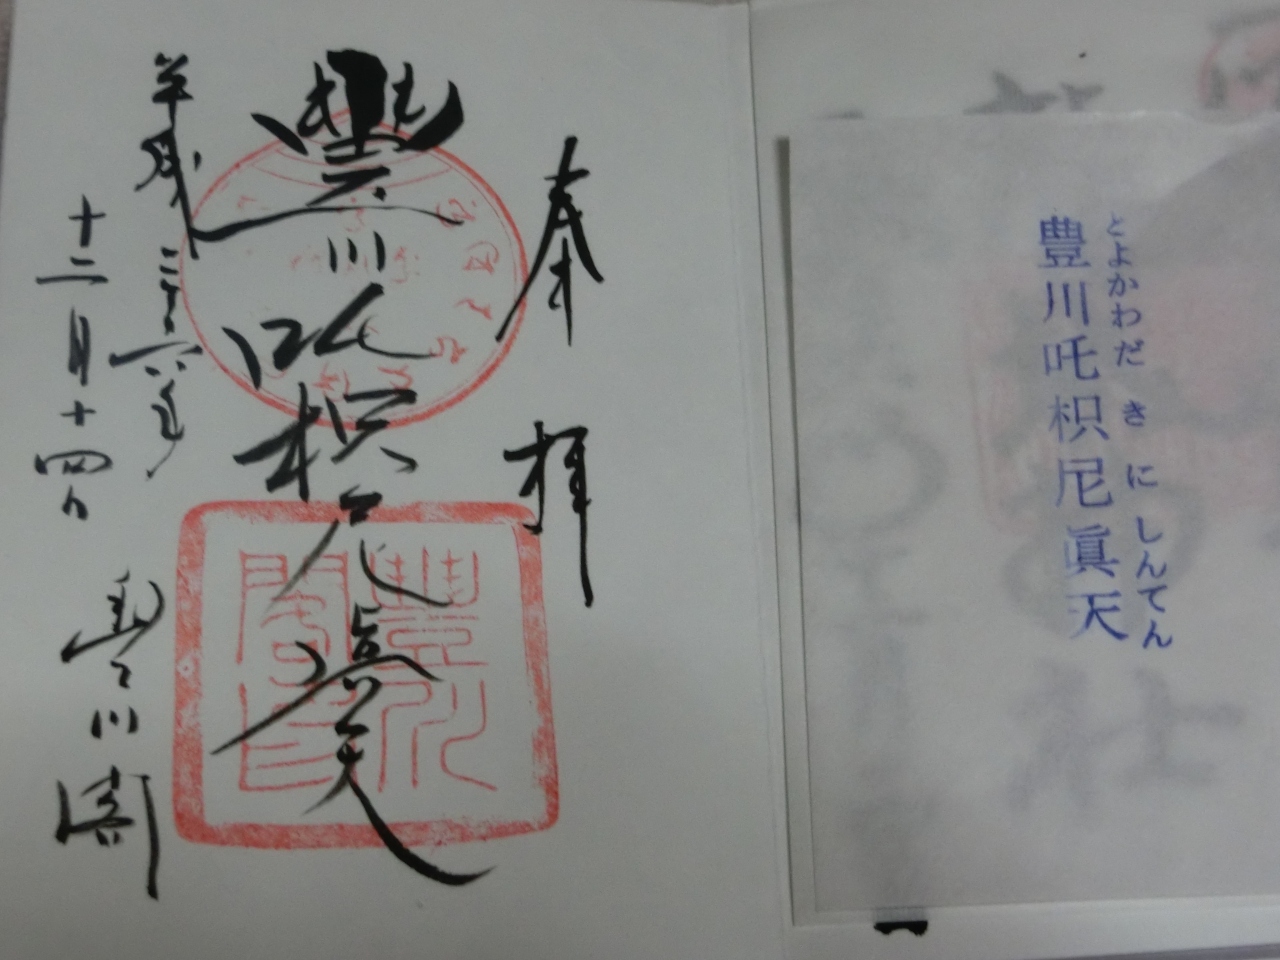 とよかわだきにしんてん
豊川吒枳尼眞天
奉拝
豐川吒枳尼眞天
豐川閣印
平成二十六年
十二月十四日
豊川閣